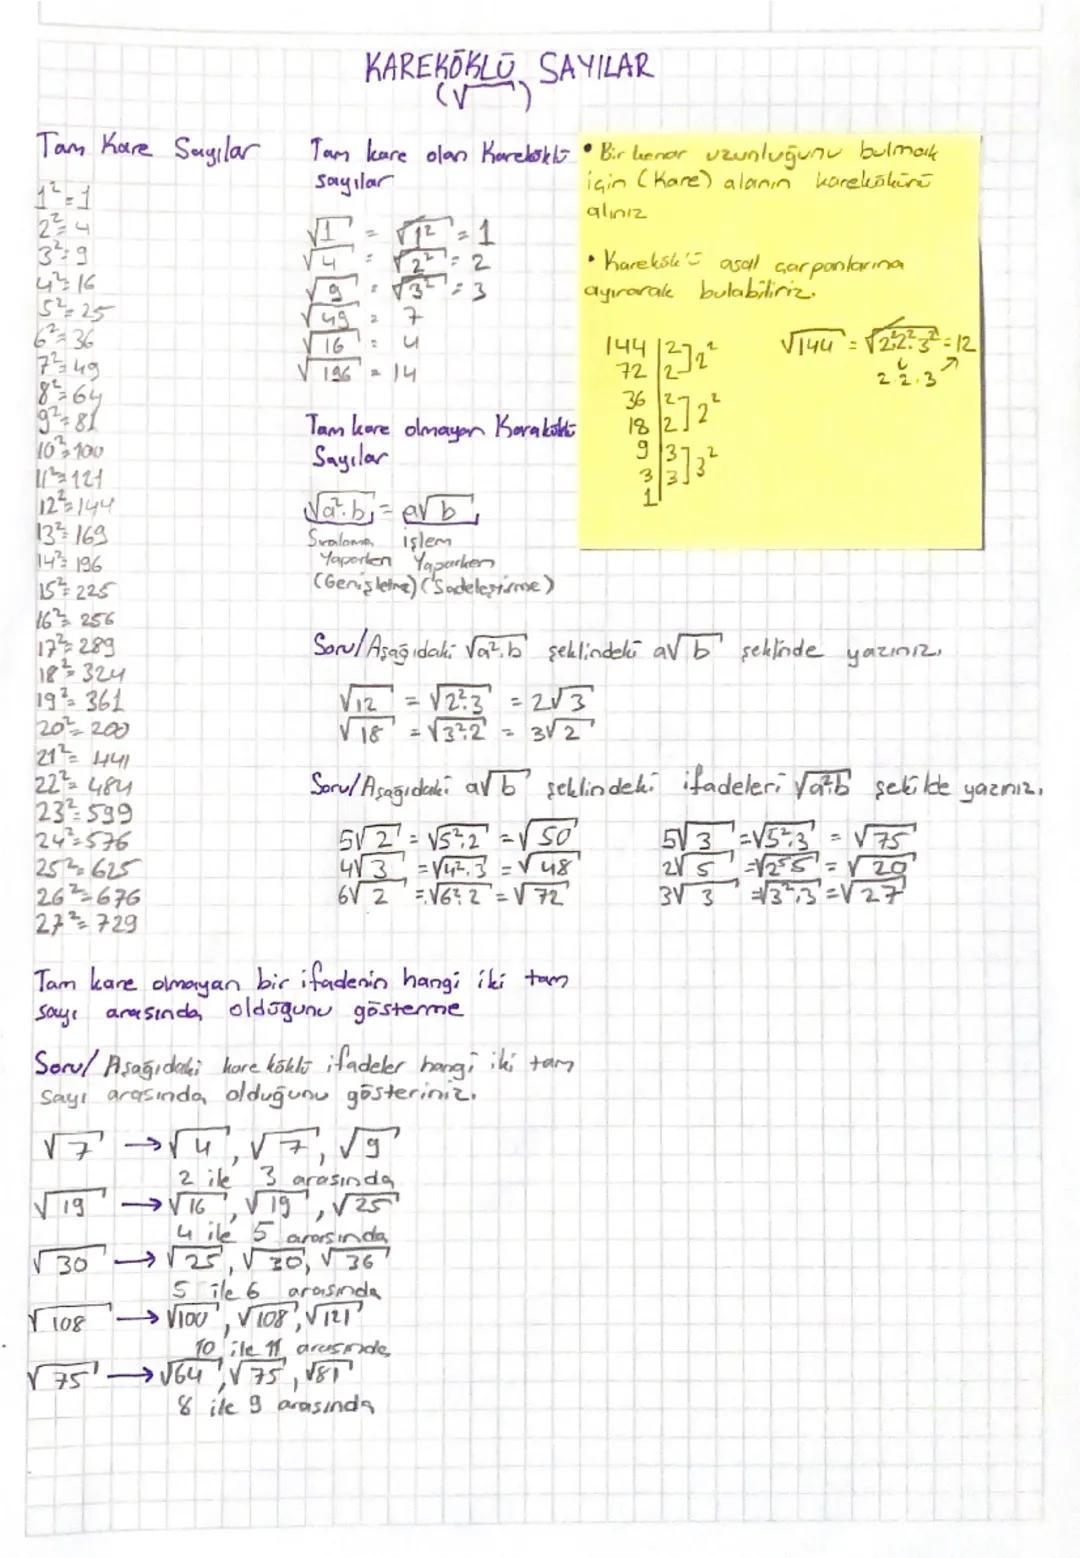 KAREKÖKLÜ SAYILAR
(√ )
Tam Kare Sayılar
1²=1
2²=4
3²=9
4²=16
5²=25
6²=36
7²=49
8²=64
9²=81
10²=100
11²=121
12²=144
13²=169
14²=196
15²=225
16²=256
17²=289
18²=324
19²=361
20²=200
21²=441
22²=484
23²=599
24²=576
25²=625
26²=676
27²=729
Tam kare olan Kareköklü
sayılar
√1 = √1² = 1
√4 = √2² = 2
√9 = √3² = 3
√49 = 7
√16 = 4
√196 = 14
Tam kare olmayan Kareköklü
Sayılar
√a².b = a√b
Sıralama işlem
Yaparken Yaparken
(Genişletme) (Sadeleştirme)
• Bir kenar uzunluğunu bulmak
için (Kare) alanın karekökünü
alınız
• Karekök'ü asal çarpanlarına
ayırarak bulabiliriz.
144 |2
72 |2 ] 2²
36 |2
18 |2 ] 2²
9 |3
3 |3 ] 3²
1
√144 = √2².2².3² = 12
2.2.3
Soru/ Aşağıdaki √a².b şeklindeki a√b şeklinde yazınız.
√12 = √2².3 = 2√3
√18 = √3².2 = 3√2
Soru/ Aşağıdaki a√b şeklindeki ifadeleri √a².b şekilde yazınız.
5√2 = √5².2 = √50
4√3 = √4².3 = √48
6√2 = √6².2 = √72
5√3 = √5².3 = √75
2√5 = √2².5 = √20
3√3 = √3².3 = √27
Tam kare olmayan bir ifadenin hangi iki tam
sayı arasında olduğunu gösterme
Soru/ Aşağıdaki kare köklü ifadeler hangi iki tam
sayı arasında olduğunu gösteriniz.
√7 → √4, √7, √9
2 ile 3 arasında
√19 → √16, √19, √25
4 ile 5 arasında
√30 → √25, √30, √36
5 ile 6 arasında
√108 → √100, √108, √121
10 ile 11 arasında
√75 → √64, √75, √81
8 ile 9 arasında